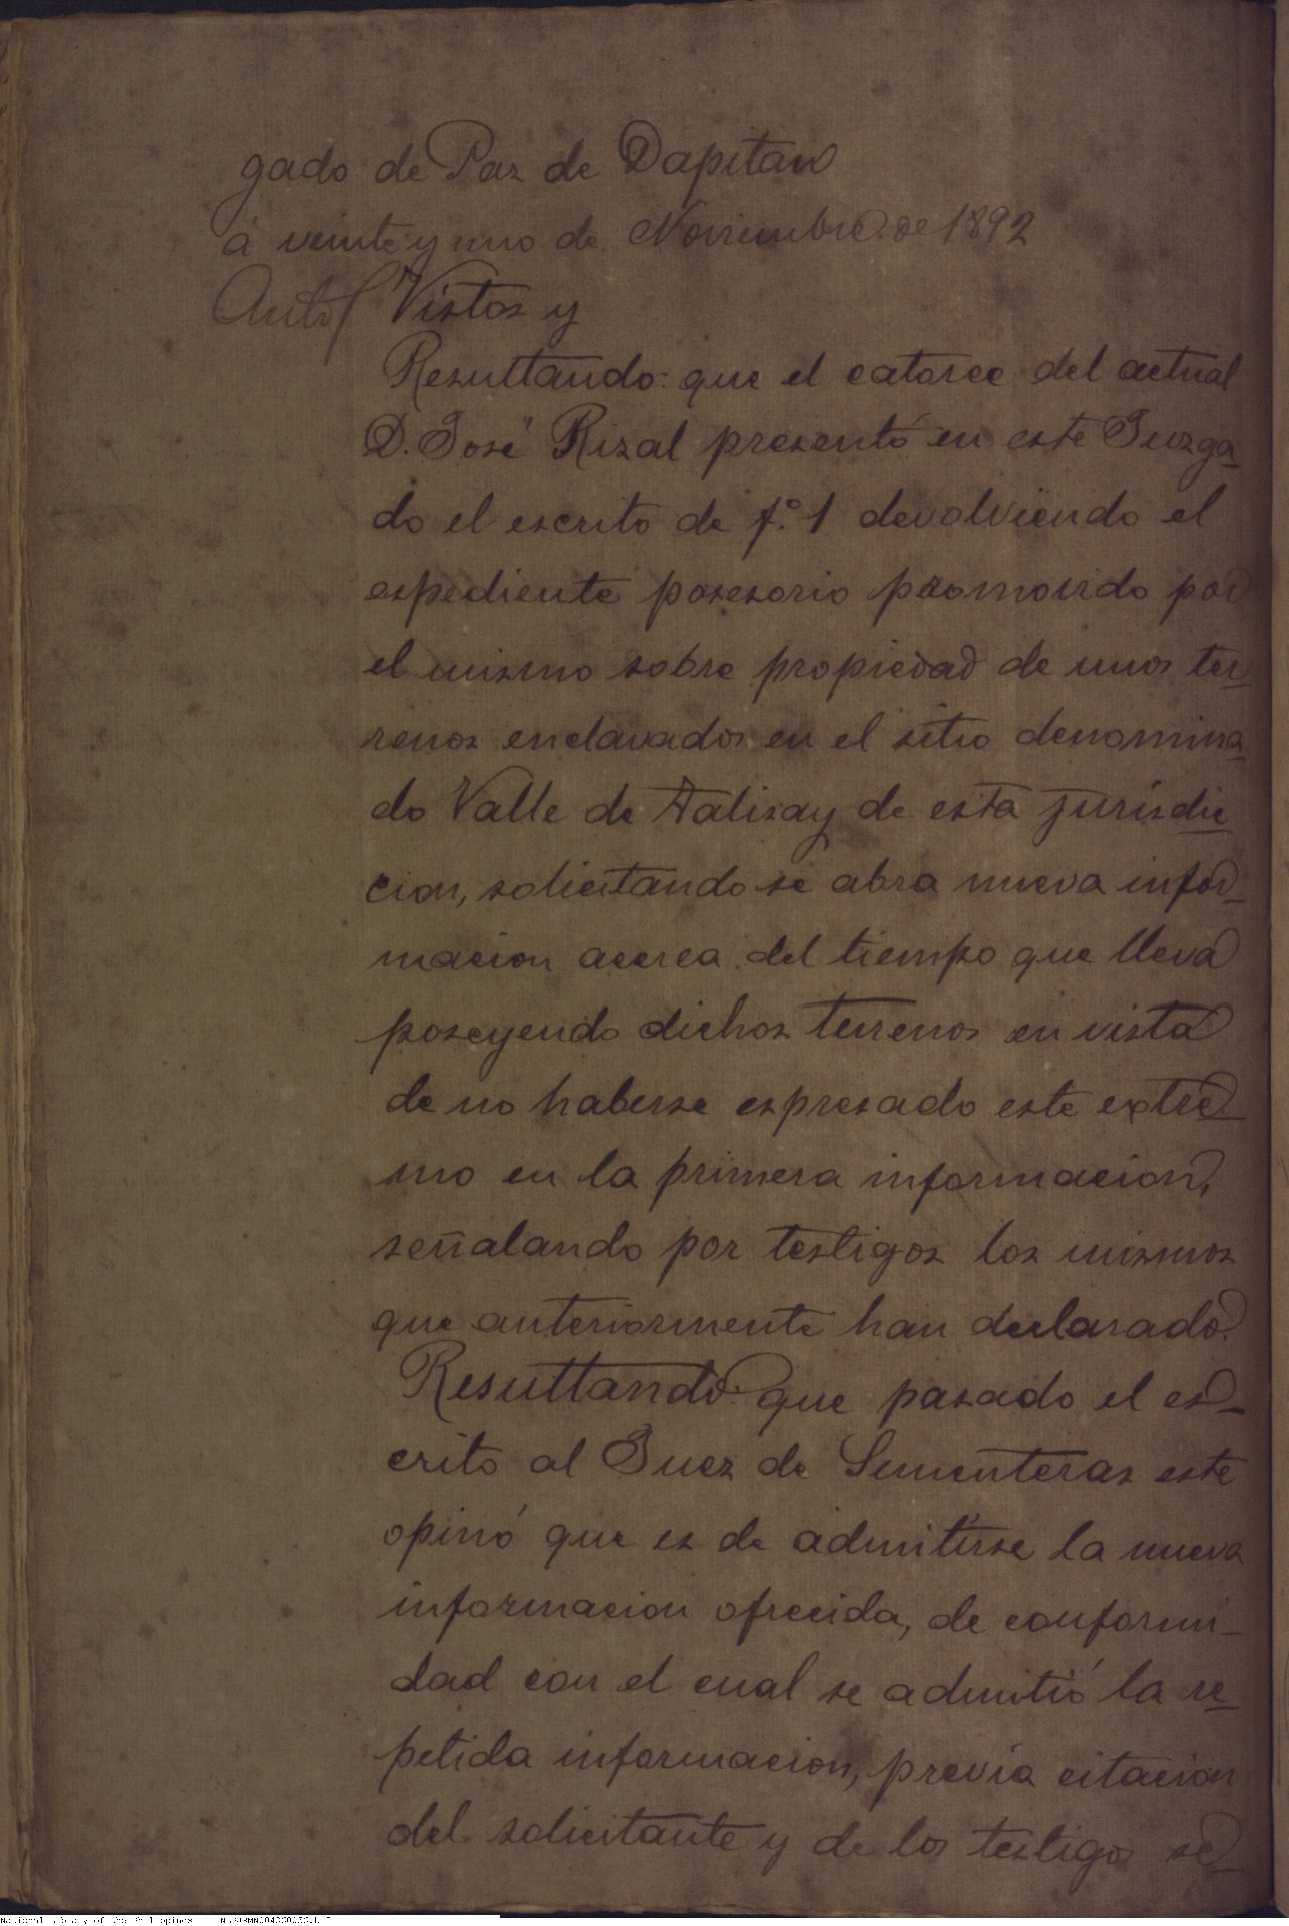 gado de Paz de Dapitan
á veinte y uno de Noviembre de 1892
Auto/ Vistos y
Resultando: que el catorce del actual
D. José Rizal presentó en este Juzga-
do el escrito de f.º 1 devolviendo el
espediente posesorio promovido por
el mismo sobre propiedad de unos ter-
renos enclavados en el sitio denomina-
do Valle de Talisay de esta jurisdic-
cion, solicitando se abra nueva infor-
macion acerca del tiempo que lleva
poseyendo dichos terrenos en vista
de no haberse espresado este extre-
mo en la primera informacion,
señalando por testigos los mismos
que anteriormente han declarado.
Resultando: que pasado el es-
crito al Juez de Sementeras este
opinó que es de admitirse la nueva
informacion ofrecida, de conformi-
dad con el cual se admitió la re-
petida informacion, previa citacion
del solicitante y de los testigos se-
National Library of the Philippines